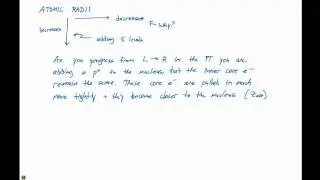 ATOMIC RADII
decreases
F - Why?
increases
adding E levels
As you progress from L → R in the PT you are
adding a p⁺ to the nucleus but the inner core e⁻
remain the same. These core e⁻ are pulled in much
more tightly + they become closer to the nucleus (Zeff)